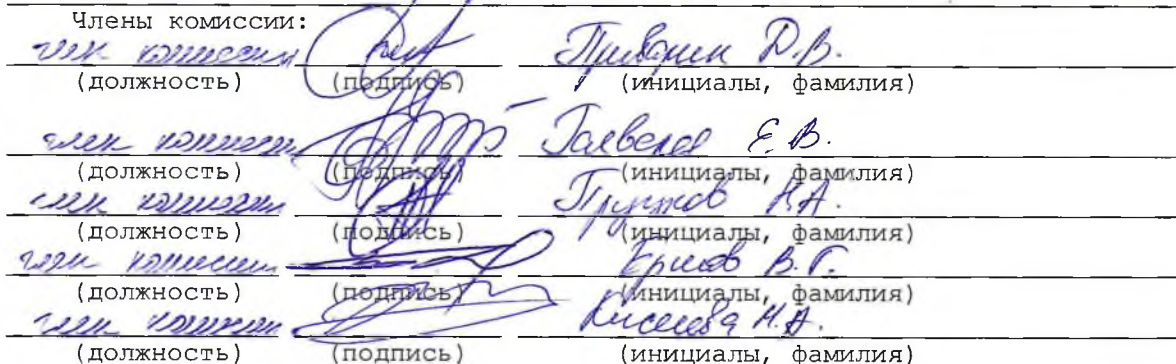 Члены комиссии:
член комиссии Д.В.
(должность) (подпись) (инициалы, фамилия)
член комиссии Е.В.
(должность) (подпись) (инициалы, фамилия)
член комиссии Н.А.
(должность) (подпись) (инициалы, фамилия)
член комиссии Ершов В.Г.
(должность) (подпись) (инициалы, фамилия)
член комиссии Киселева Н.А.
(должность) (подпись) (инициалы, фамилия)